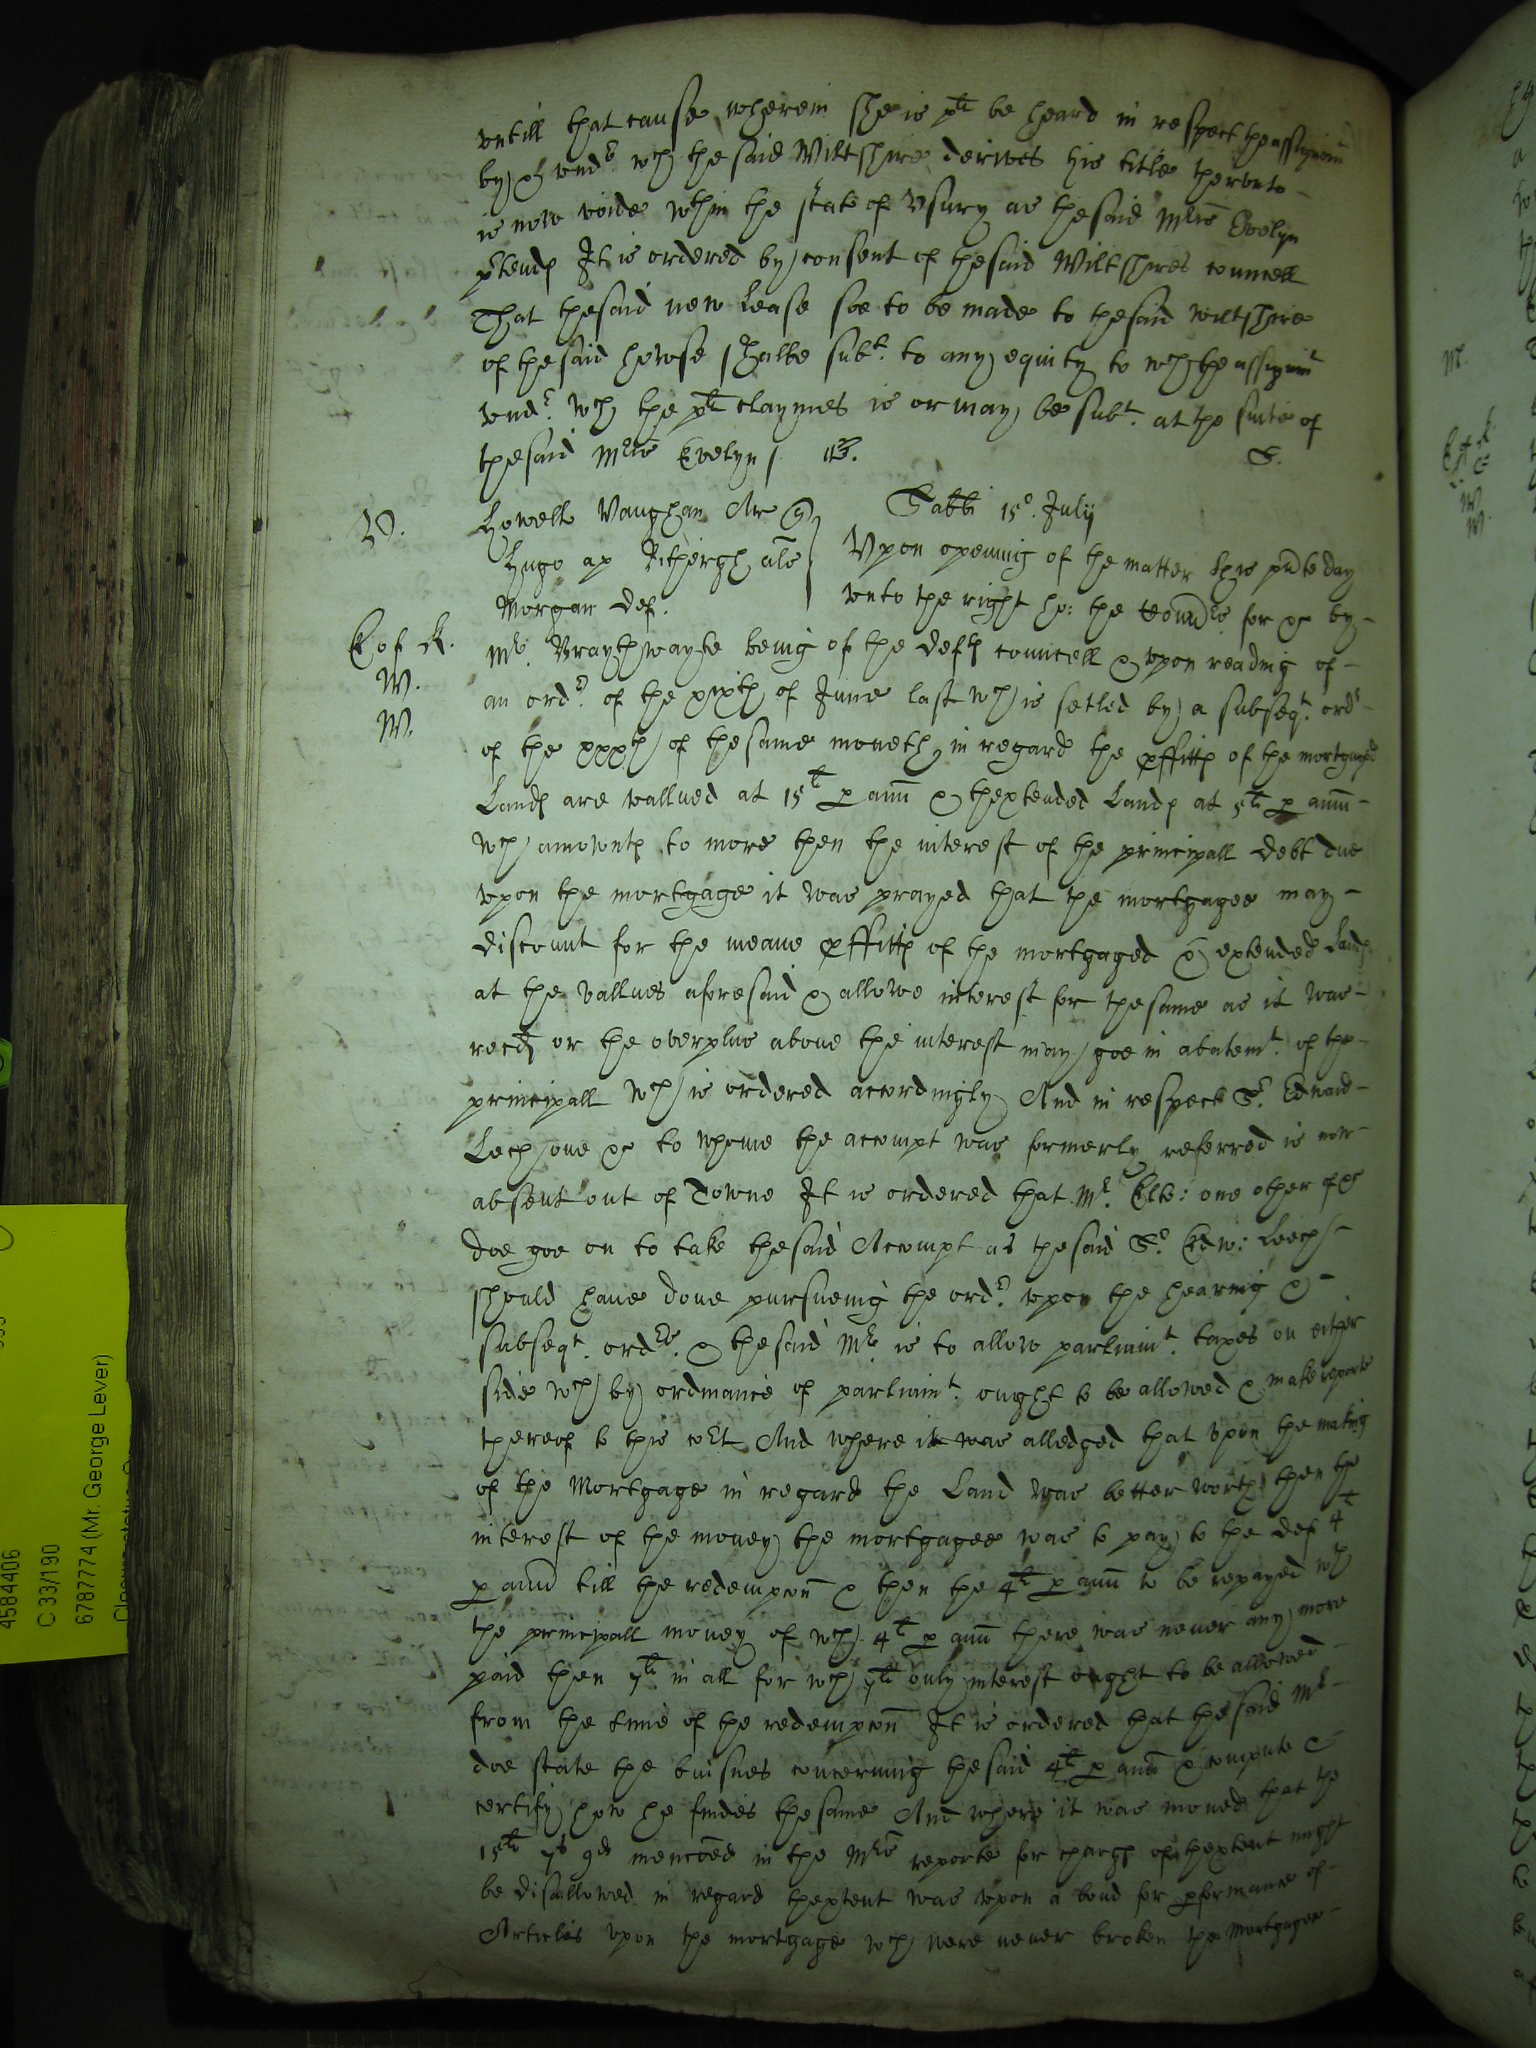 vntill that cause wherein she is plt be heard in respect the assignmt
by & vnder wch the said Wiltshire derives his title therevnto
is now voide wthin the state of Vsury as the said Mris Evelyn
ptends It is ordered by consent of the said Wiltshires councell
That the said new Lease soe to be made to the said Wiltshire
of the said howse shalbe subt. to any equity to wch the assignmt
vndr. wch the plt claymes is or may be subt. at the suite of
the said Mris Evelyn /.
S.
Howell Vaughan Ar
Sabbi 15o. Julij
Hugo ap Rithergh als
Vpon opening of the matter this pnte day
Morgan Def.
vnto the right ho: the Comrs for &c by
E of K.
Mr. Braythwayte being of the Defts councell & vpon reading of
W.
an ordr. of the xixth of June last wch is setled by a subseqt. ordr
W.
of the xxxth of the same moneth, in regard the pffitts of the mortgaged
Lands are vallued at 15li p ann & thextended Lands at 5li p ann
wch amounts to more then the interest of the principall debt due
vpon the mortgage it was prayed that the mortgagee may
discount for the meane pffitts of the mortgaged & extended Lands
at the vallues aforesaid & allowe interest for the same as it was
recd or the overplus aboue the interest may goe in abatemt. of the
principall wch is ordered accordingly And in respect Sr. Edward
Leech one &c to whome the accompt was formerly referred is now
absent out of Towne It is ordered that Mr. Elte: one other of &c
doe goe on to take the said Accompt as the said Sr. Edw: Leech
should haue done pursueing the ordr. vpon the hearing &
subseqt. ordrs. & the said Mr. is to allow parliamt. taxes on either
side wch by ordinance of parliamt. ought to be allowed & make reporte
thereof to this Cort And where it was alledged that vpon the making
of the Mortgage in regard the Land was better worth then the
interest of the money the mortgagee was to pay to the def 4li
p ann till the redempcon & then the 4li p ann to be repayed wth
the principall money of wch 4li p ann there was neuer any more
paid then 7li in all for wch 7li only interest ought to be allowed
from the time of the redempcon It is ordered that the said Mr
doe state the buisnes concerning the said 4li p ann & compute &
certify how he findes the same And where it was moued that the
15li 7s 9d menconed in the Mrs reporte for chargs of thextent might
be disallowed in regard thextent was vpon a bond for pformance of
Articles vpon the mortgage wch were neuer broken the Mortgagee
4584406
C 33/190
6787774 (Mr. George Lever)